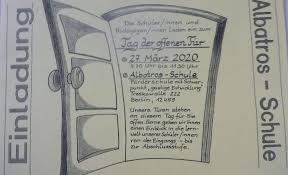 Einladung
Die Schüler/innen und
Pädagogen/innen laden ein zum
Tag der offenen Tür
27. März 2020
9.30 Uhr bis 11.30 Uhr
Albatros-Schule
Förderschule mit Schwer-
punkt „geistige Entwicklung"
Treskowallee 222
Berlin, 12459
Unsere Türen stehen
an diesem Tag für Sie
offen. Gerne geben wir Ihnen
einen Einblick in die Lern-
welt unserer Schüler/innen
von der Eingangs- bis
zur Abschlussstufe.
Albatros - Schule